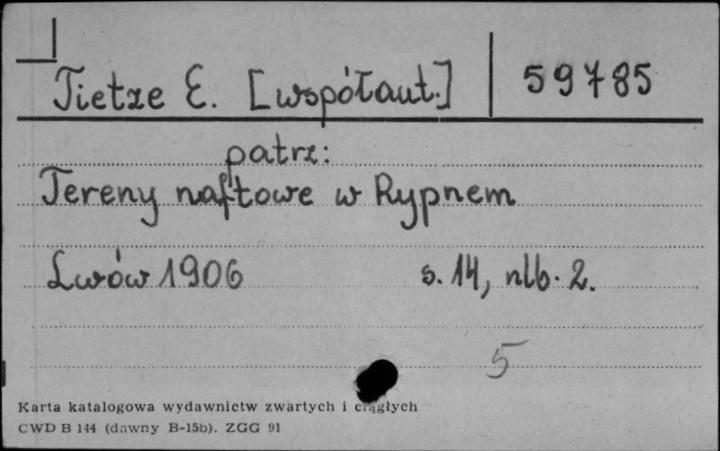 Tietze E. [współaut.] 59785
patrz:
Tereny naftowe w Rypnem
Lwów 1906 s. 14, nlb. 2.
5
Karta katalogowa wydawnictw zwartych i ciągłych
CWD B 144 (dawny B-15b). ZGG 91